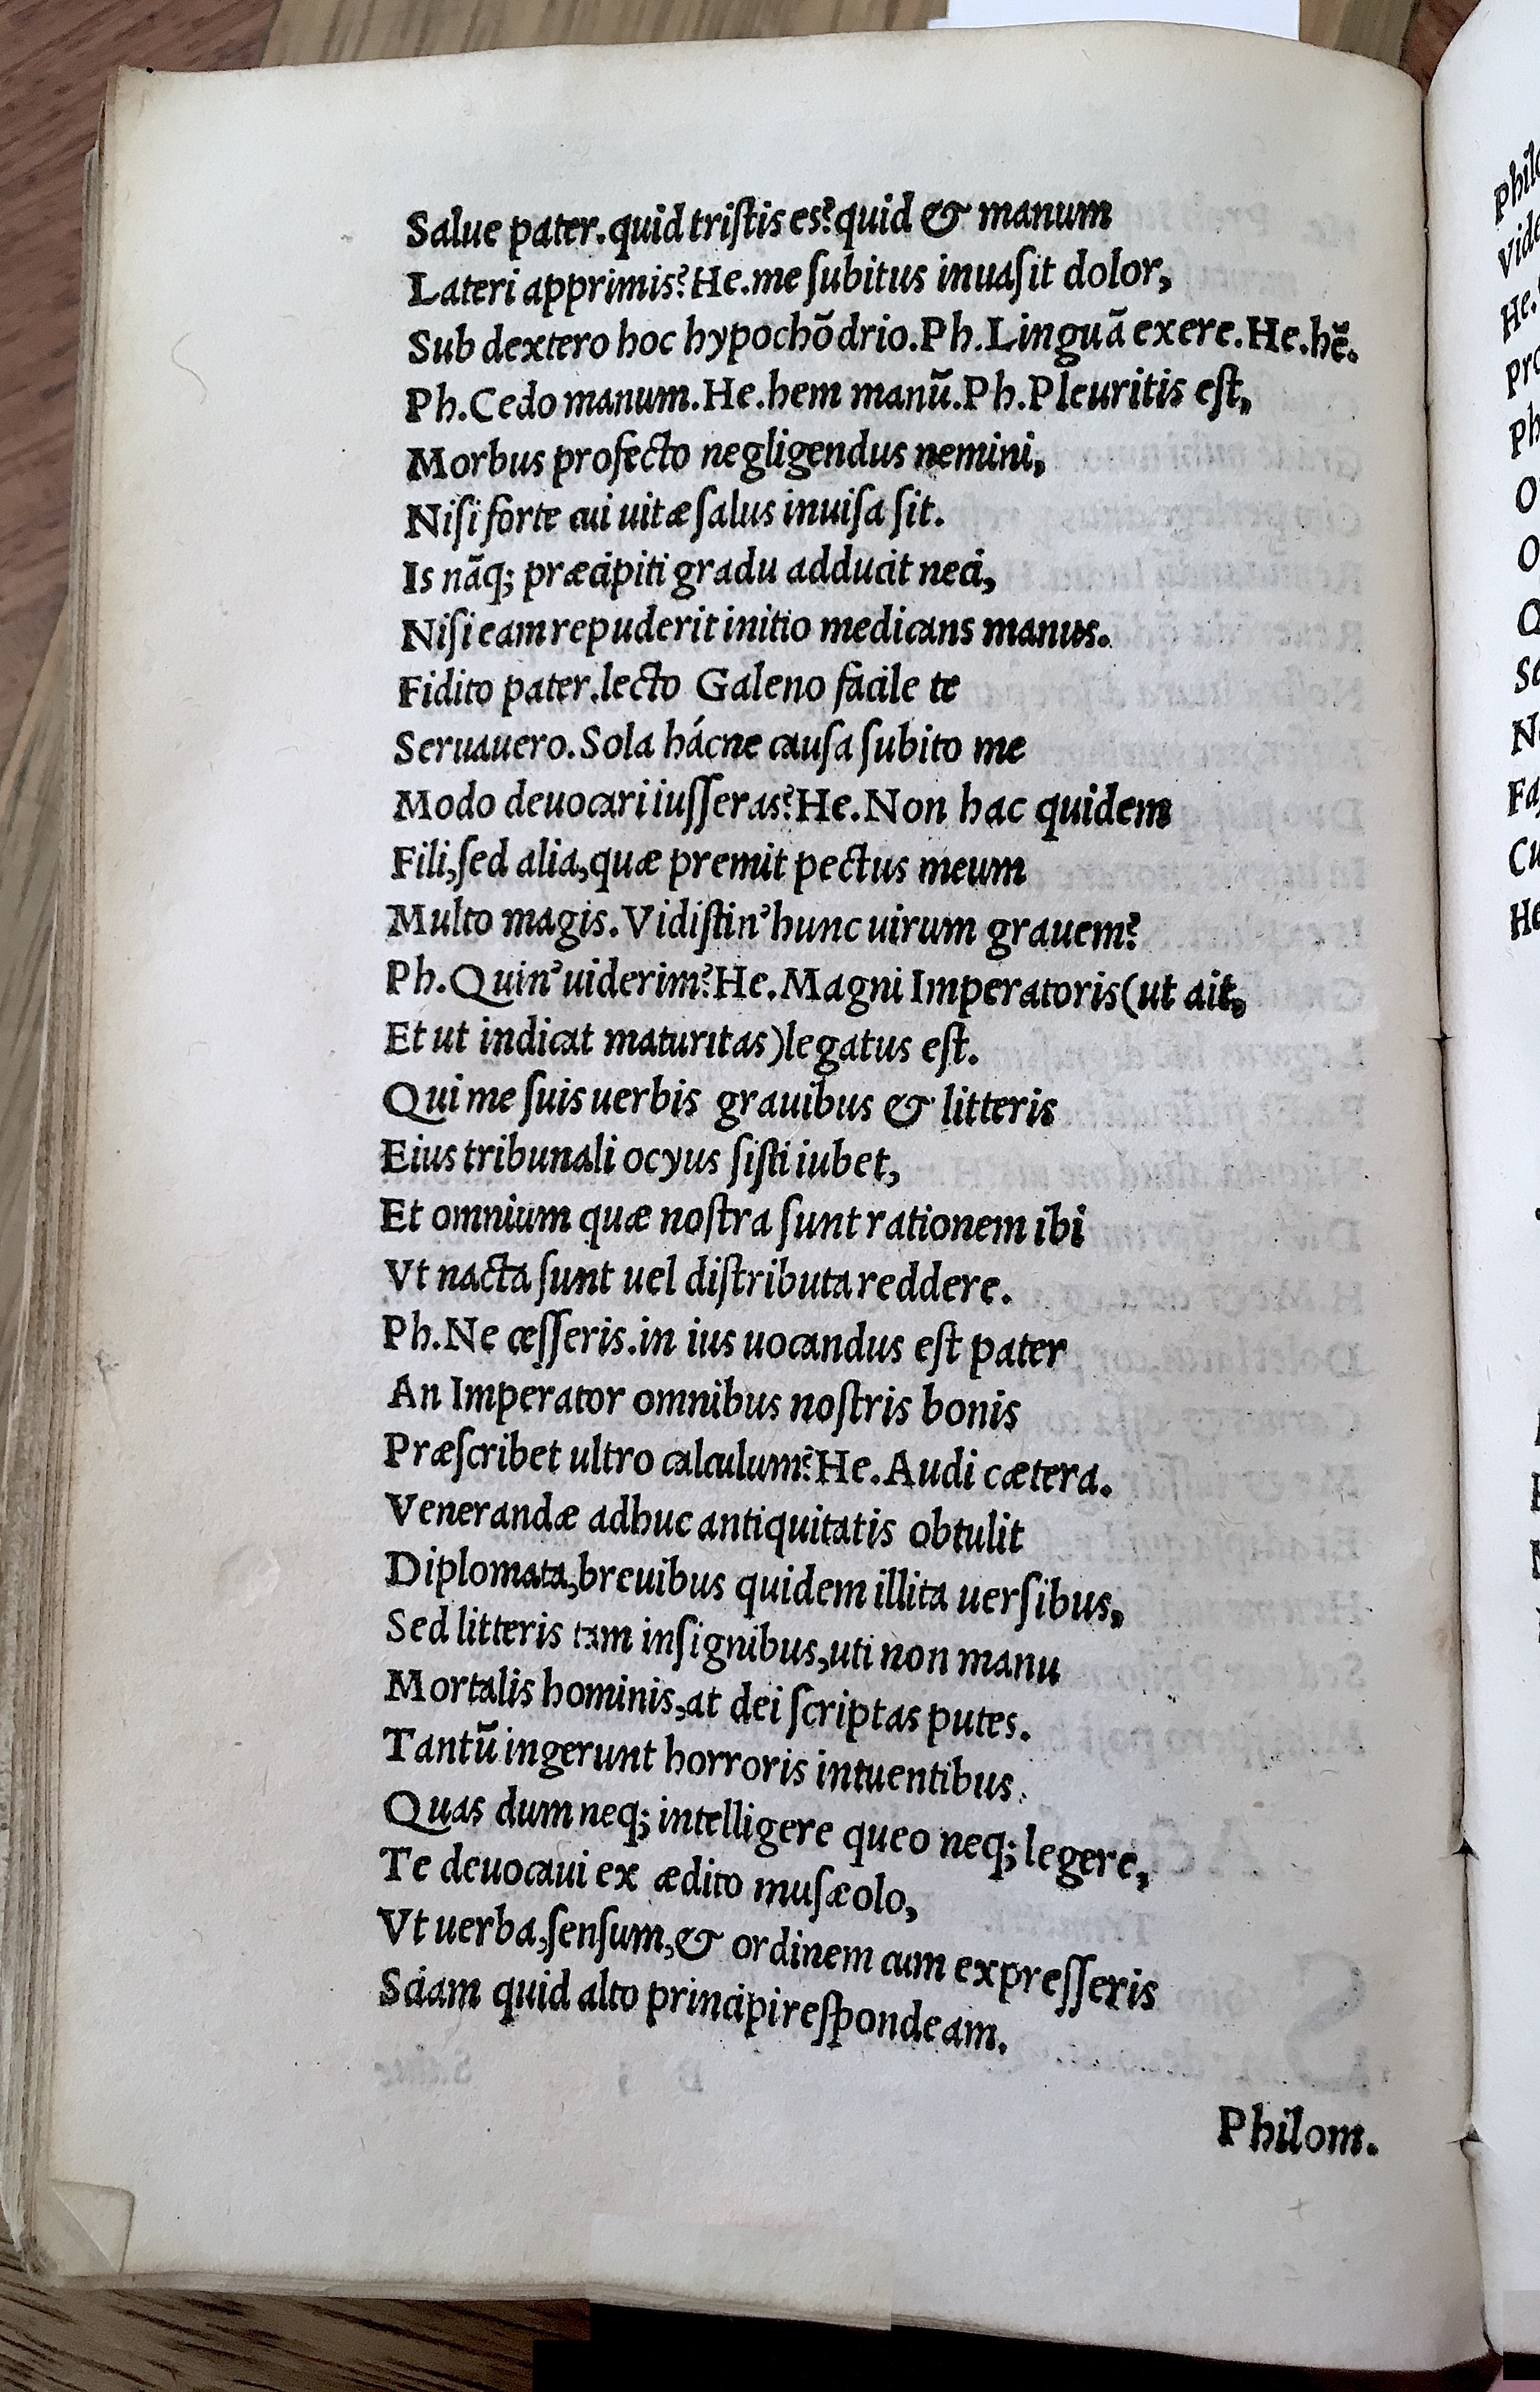 Salue pater.quid tristis es?quid & manum
Lateri apprimis?He.me subitus inuasit dolor,
Sub dextero hoc hypochõdrio.Ph.Linguã exere.He.hẽ.
Ph.Cedo manum.He.hem manũ.Ph.Pleuritis est,
Morbus profecto negligendus nemini,
Nisi forte cui uitæ salus inuisa sit.
Is nãq; præcipiti gradu adducit neci,
Nisi eam repuderit initio medicans manus.
Fidito pater.lecto Galeno facile te
Seruauero.Sola hácne causa subito me
Modo deuocari iusseras?He.Non hac quidem
Fili,sed alia,quæ premit pectus meum
Multo magis.Vidistin'hunc uirum grauem?
Ph.Quin'uiderim?He.Magni Imperatoris(ut ait,
Et ut indicat maturitas)legatus est.
Qui me suis uerbis grauibus & litteris
Eius tribunali ocyus sisti iubet,
Et omnium quæ nostra sunt rationem ibi
Vt nacta sunt uel distributa reddere.
Ph.Ne cesseris.in ius uocandus est pater
An Imperator omnibus nostris bonis
Præscribet ultro calculum?He.Audi cætera.
Venerandæ adhuc antiquitatis obtulit
Diplomata,breuibus quidem illita uersibus,
Sed litteris tam insignibus,uti non manu
Mortalis hominis,at dei scriptas putes.
Tantũ ingerunt horroris intuentibus.
Quas dum neq; intelligere queo neq; legere,
Te deuocaui ex ædito musæolo,
Vt uerba,sensum,& ordinem cum expresseris
Sciam quid alto principi respondeam.
Philom.